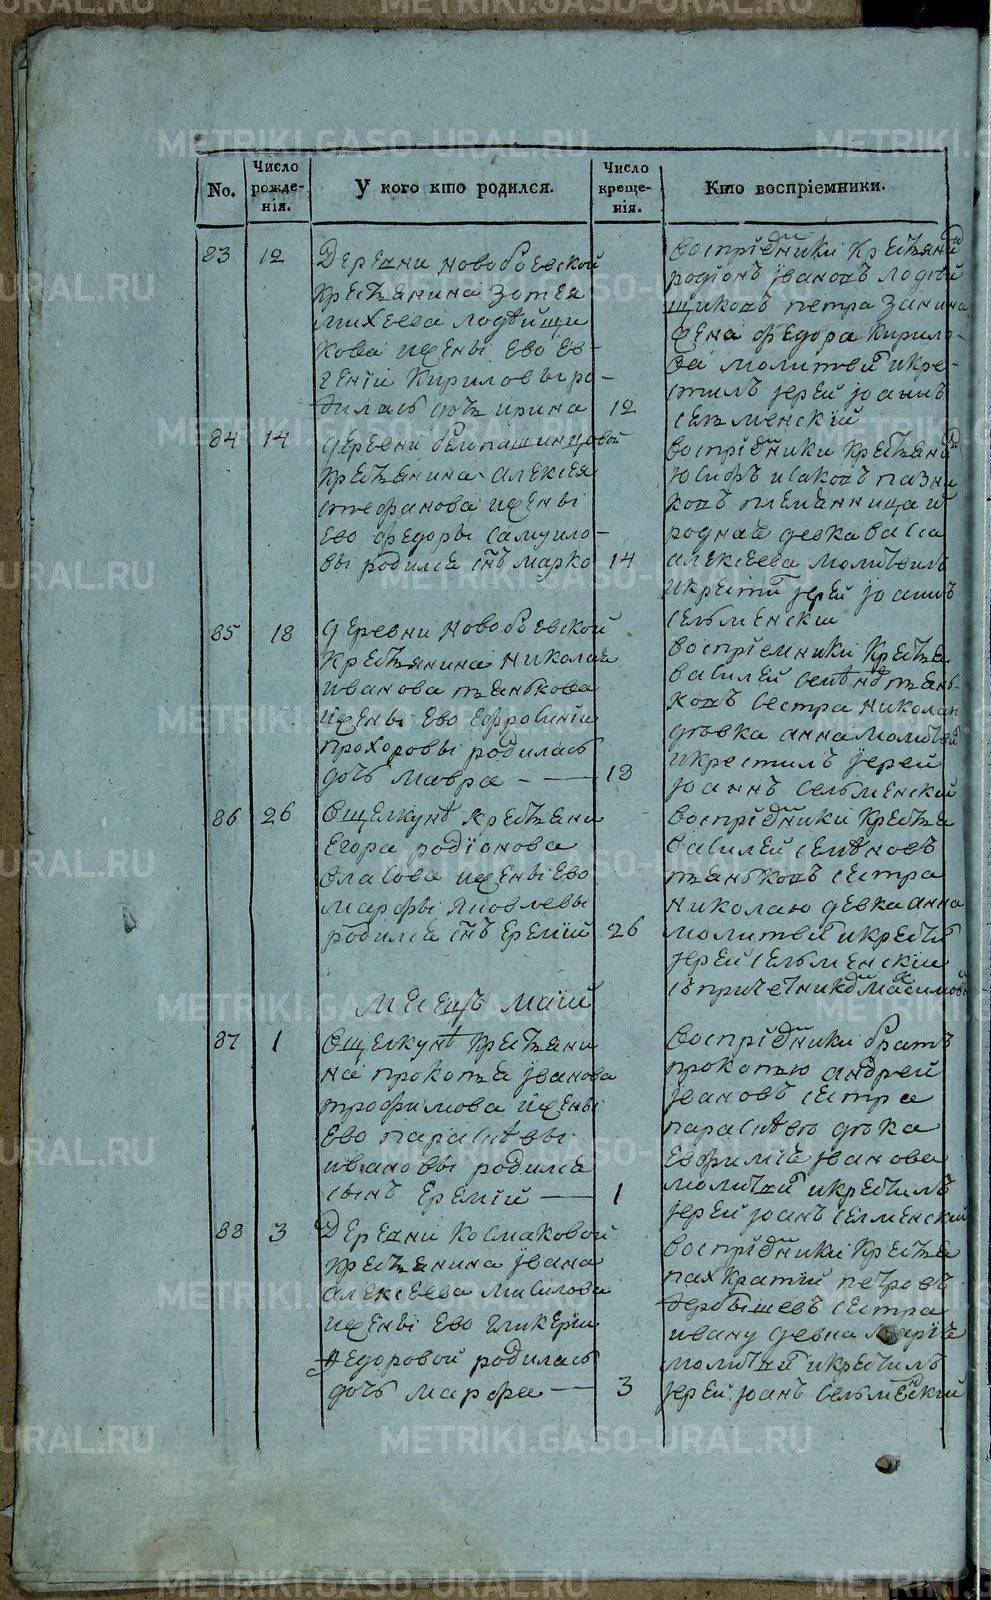 METRIKI.GASO-URAL.RU
No.
Число рожде-нія.
У кого кто родился.
Число креще-нія.
Кто воспріемники.
83 12
Деревни новобоевской
крестьянина зотея
михеева
кова ижены ево ев-
гении кириловы ро-
дилась дочь ирина 12
воспріемники крестьяни
родіонъ ивановъ
щиковъ петра занина
жена федора кирило-
ва молитвил икре-
стилъ іерей іоаннъ
сельменскій
84 14
деревни белопашинцовой
крестьянина алексея
стефанова ижены
ево федоры самуило-
вы родился снъ марко 14
воспріемники крестьяни
іосифъ исаковъ пазни
ковъ племянница и
родная девка васса
алексеева молитвилъ
икрестил іерей іоаннъ
сельменскій
85 18
деревни новобоевской
крестьянина николая
иванова панькова
ижены ево ефросиніи
прохоровы родилась
дочь мавра 18
воспріемники крестья
василей семенов пань-
ковъ сестра николаи
девка анна молитвил
икрестилъ іерей
іоаннъ сельменскій
86 26
Ощелкунѣ крестьяни
егора родіонова
власова ижены ево
марфы яковлевы
родился снъ еремій 26
воспріемники крестья
василей семеновъ
паньковъ сестра
николаю девка анна
молитвил икрестил
іерей сельменскій
спричетником максимовы
месецъ маій
87 1
Ощелкунѣ крестьяни
на прокопья іванова
трофимова ижены
ево парасковьи
ивановы родился
сынъ еремій 1
воспріемники братъ
прокопью андрей
івановъ сестра
девка
евфимія іванова
молитвил икрестилъ
іерей іоанъ селменскій
88 3
Деревни космаковой
крестьянина івана
алексеева
ижены ево гликеріи
федоровой родилась
дочь марфа 3
воспріемники крестья
панкратій петровъ
дербышевъ сестра
ивану девка марія
молитвил икрестилъ
іерей іоанъ сельменскій